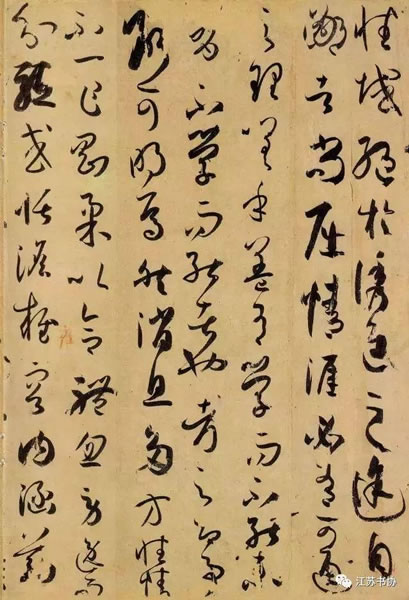 性域絕於誘進之途自
鄙者尚屈情涯必有可通
之理嗟乎蓋有學而不能未
有不學而能者也考之即事
斷可明焉然消息多方性情
不一乍剛柔以合體忽勞逸而
分驅或恬澹雍容內涵筋
江苏书协